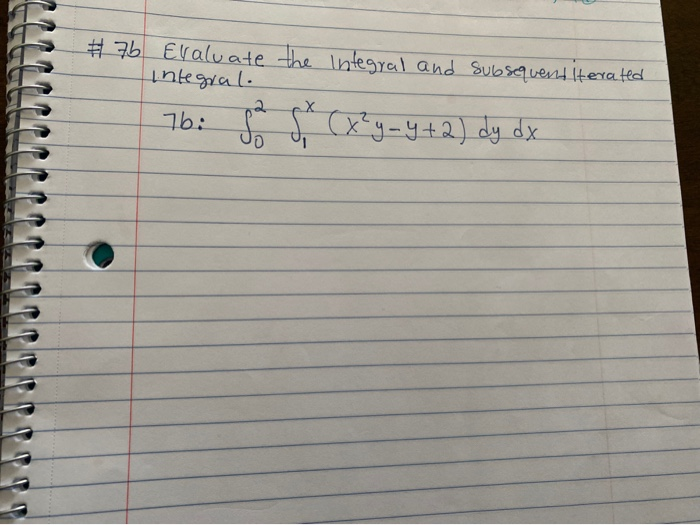 # 7b Evaluate the integral and subsequent iterated
integral.
7b: ∫₀² ∫₁ˣ (x²y-y+2) dy dx